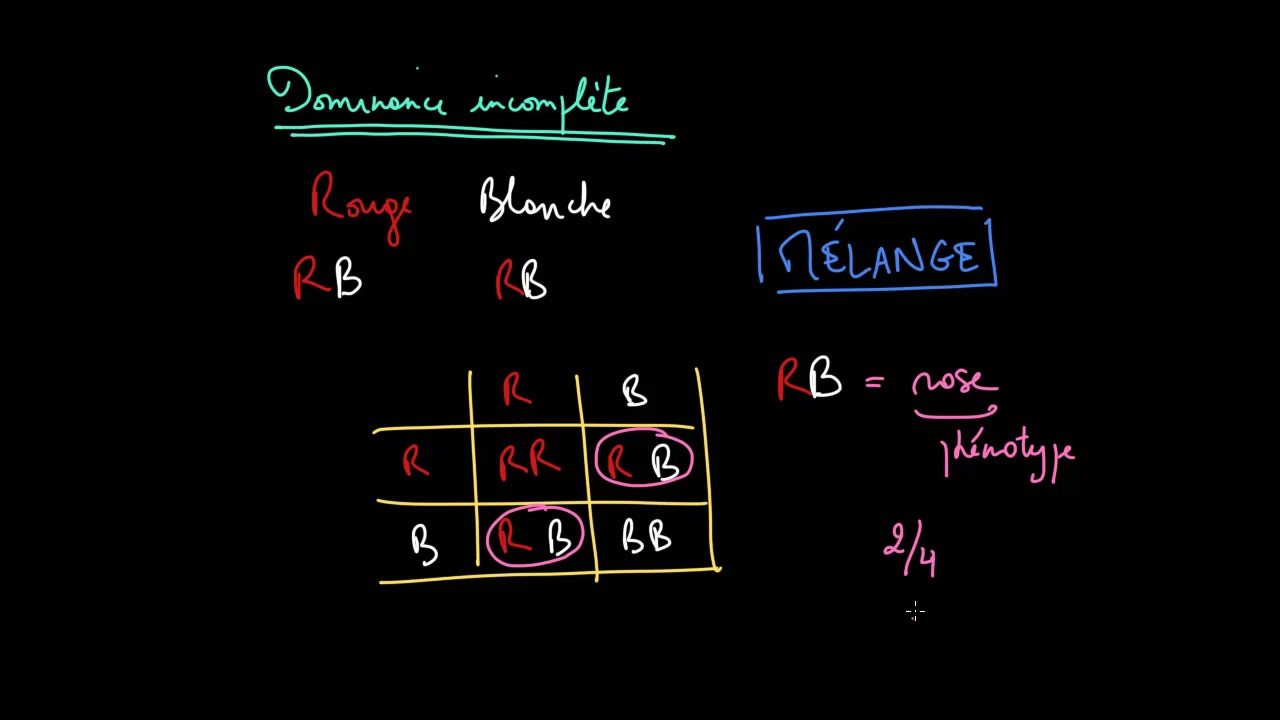 Dominance incomplète
Rouge Blanche
RB RB
MÉLANGE
R B
R RR R B
B R B BB
RB = rose
phénotype
2/4